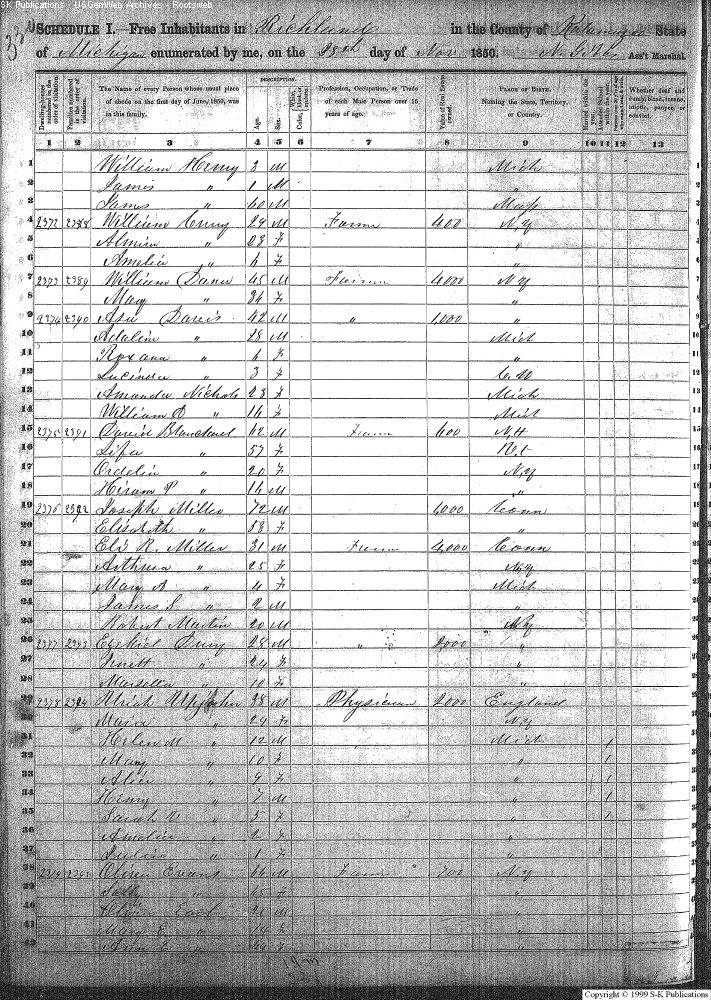 SK Publications - USGenWeb Archives - Rootsweb
SCHEDULE I.—Free Inhabitants in Richland in the County of Kalamazoo State
of Michigan enumerated by me, on the 28th day of Nov 1850. Ass't Marshal.
DESCRIPTION.
Dwelling-houses numbered in the order of visitation. Families numbered in the order of visitation. The Name of every Person whose usual place of abode on the first day of June, 1850, was in this family. Age. Sex. Color, White, black, or mulatto. Profession, Occupation, or Trade of each Male Person over 15 years of age. Value of Real Estate owned. PLACE OF BIRTH. Naming the State, Territory, or Country. Married within the year. Attended School within the year. Whether deaf and dumb, blind, insane, idiotic, pauper, or convict.
1 2 3 4 5 6 7 8 9 10 11 12 13
1 William Henry 3 M Mich
2 James " 1 M "
3 James " 60 M Mass
4 2372 2388 William 29 M Farmer 400 N.Y
5 Almira " F "
6 Amelia " 6 F "
7 2373 2389 William 45 M Farmer 4000 N.Y
8 Mary " 34 F "
9 2374 2390 Asa Davis 42 M " 1,000 "
10 Adalin " 28 M Mich
11 Roxana " 6 F "
12 Lucinda " 3 F C.W
13 Amanda Nichols 23 F Mich
14 William O " 16 F Mich
15 2375 2391 David Blanchard 62 M Farmer 600 N.H
16 " 57 F
17 Ordelia " 20 F N.Y
18 Hiram P " 16 M "
19 2376 2392 Joseph Miller 72 M 6000 Conn
20 Elisabeth " 58 F "
21 Eli R. Miller 31 M Farmer 4,000 Conn
22 " 25 F N.Y
23 Mary A " 4 F Mich
24 James S " 2 M "
25 Robert Martin 20 M N.Y
26 2377 2393 Ezekiel 28 M " 2000 "
27 " 24 F "
28 Marsella " 10 F "
29 2378 2394 Uriah Upjohn 38 M Physician 2000 England
30 Maria " 29 F N.Y
31 Helen M " 12 M Mich 1
32 Mary " 10 F " 1
33 Alice " 9 F " 1
34 Henry " 7 M " 1
35 Sarah " 5 F " 1
36 Amelia " 2 F "
37 " 1 F "
38 2379 2395 Oliver Evans 66 M Farmer 700 N.Y
39 Sally " 65 F "
40 Earl 21 M "
41 Mary E " 19 F "
42 Ann E " F "
Copyright © 1999 S-K Publications